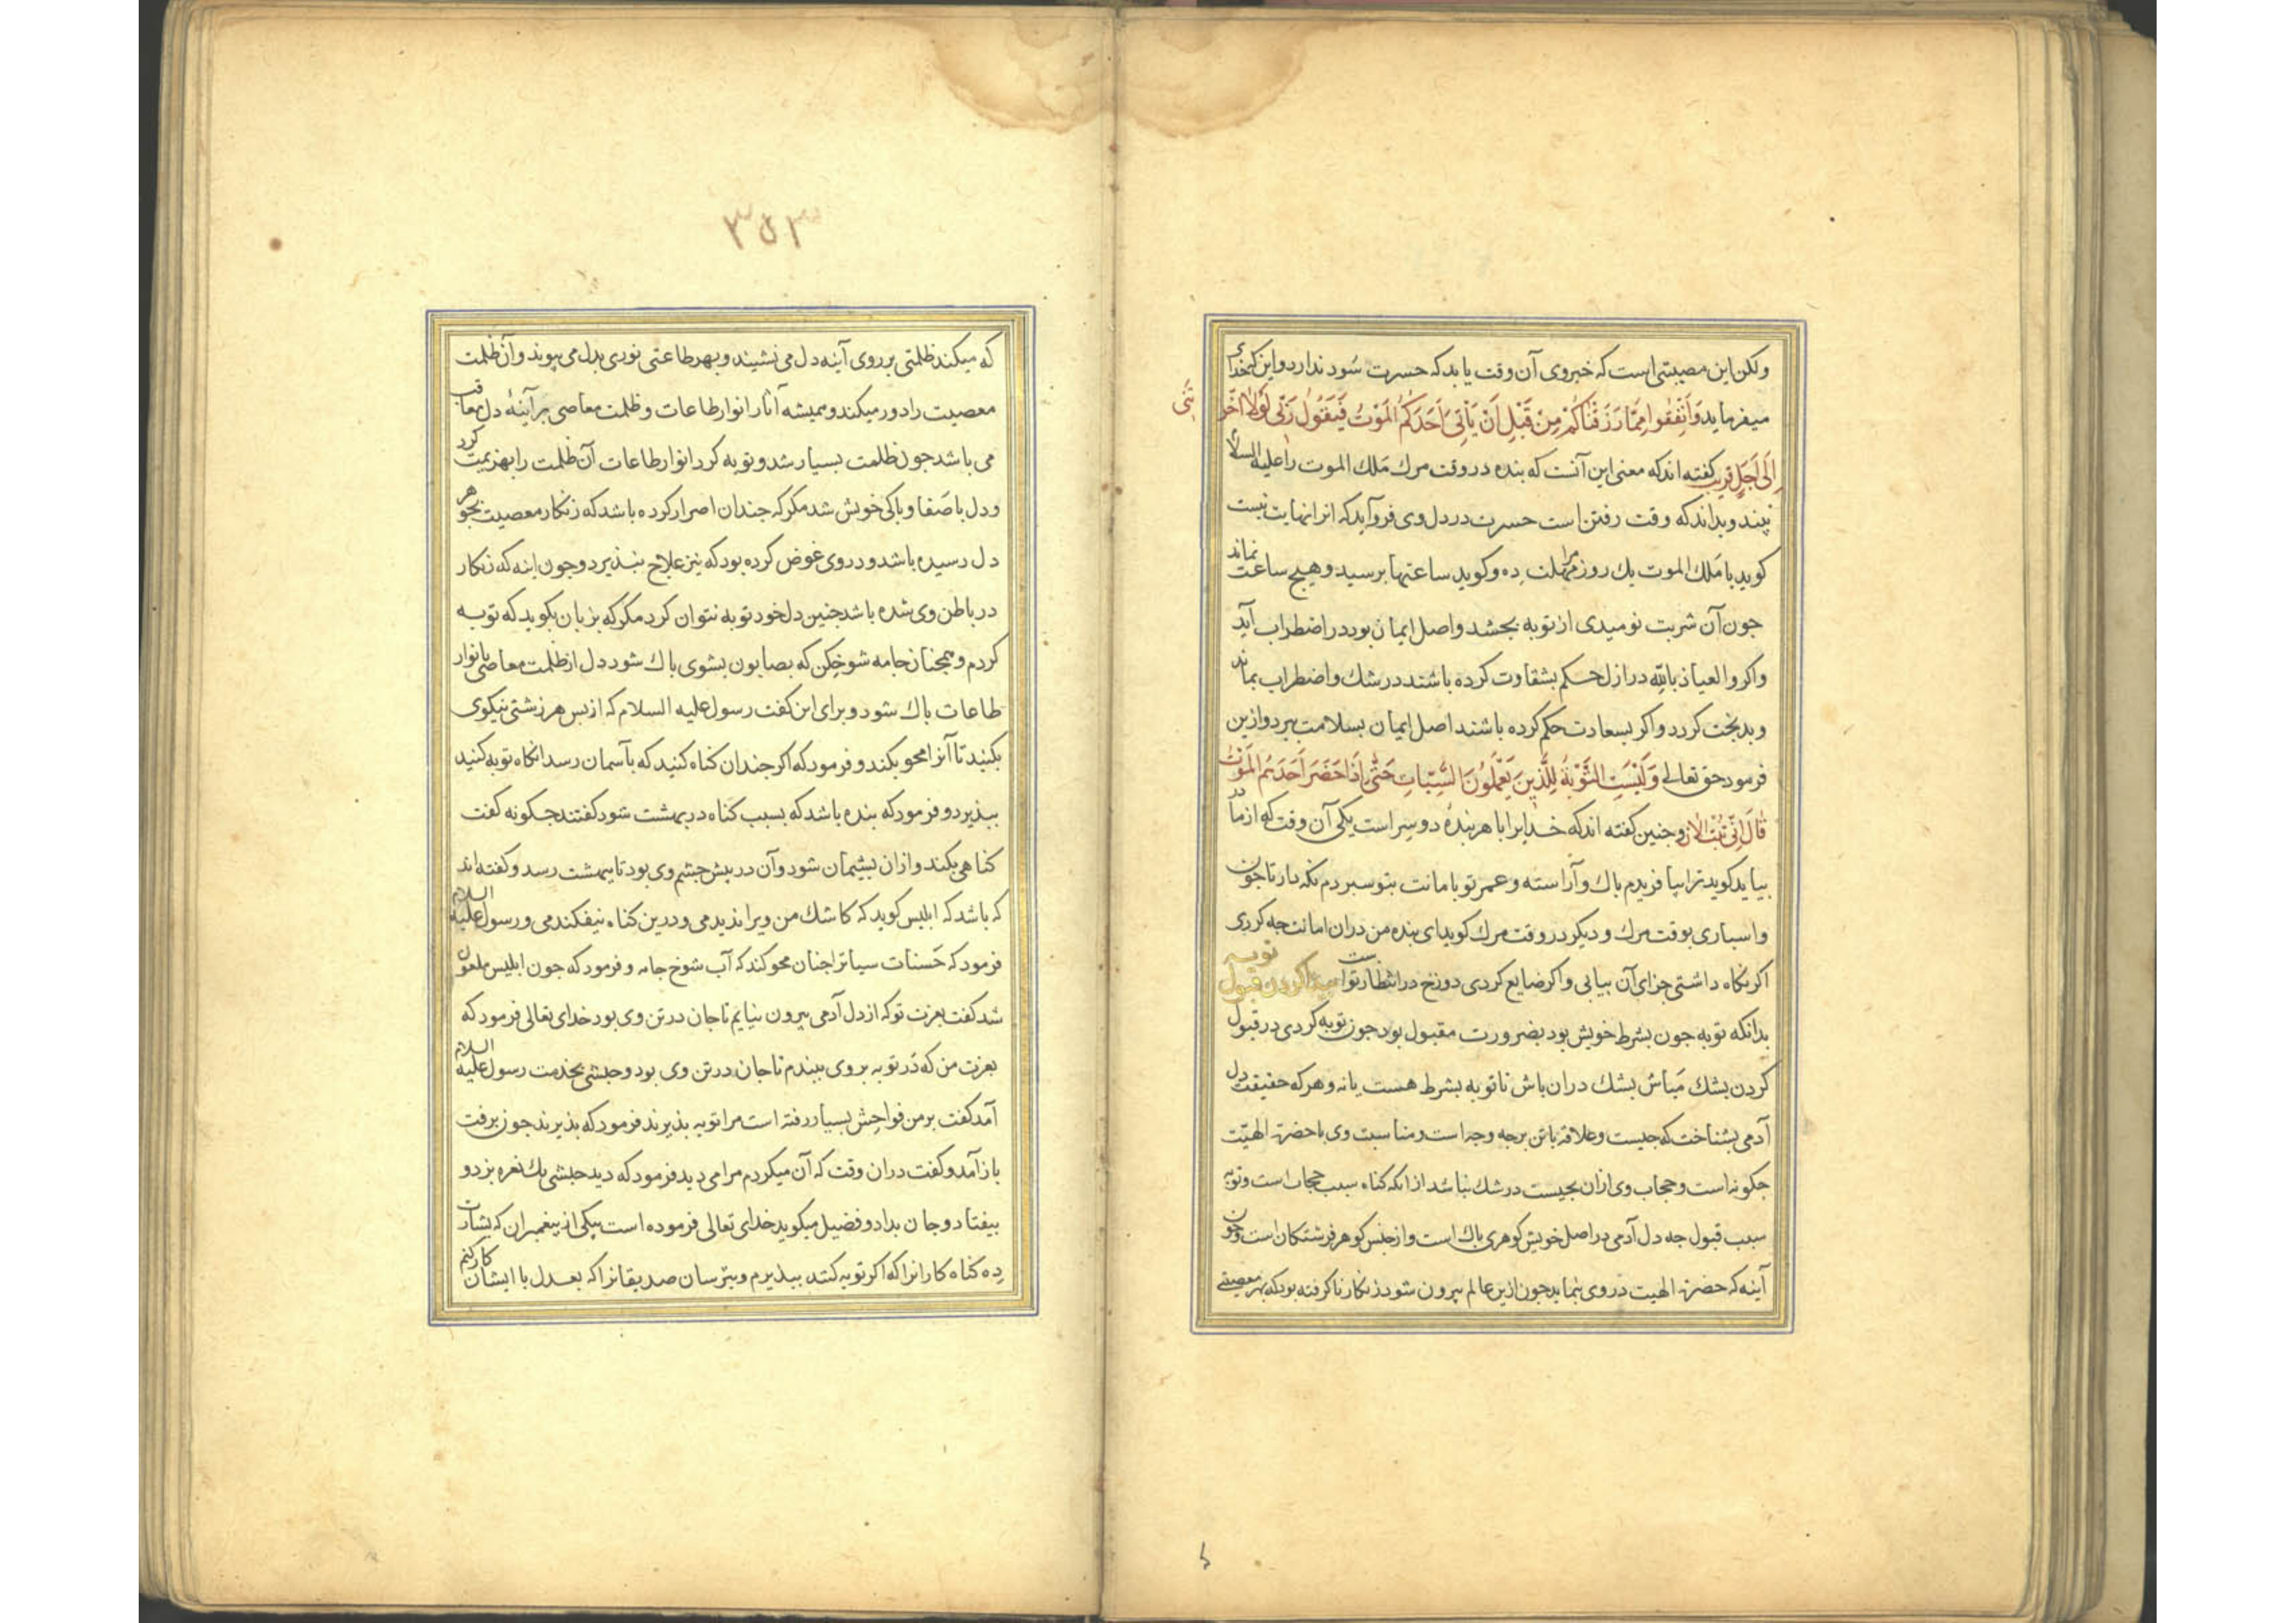 ولکن این مصیبتی است که خبر وی آن وقت یابد که حسرت سُود ندارد و این که خدای
میفرماید وَاَنْفِقُوا مِمَّا رَزَقْنَاكُمْ مِنْ قَبْلِ اَنْ يَأْتِىَ اَحَدَكُمُ الْمَوْتُ فَيَقُولُ رَبِّى لَوْلَا اخَّرْتَنِى
اِلَى اَجَلٍ قَرِيبٍ کفته اند که معنی این آنست که بنده در وقت مرك مَلك الموت را علیه السلام
ببیند و بداند که وقت رفتن است حسرت در دل وی فرو آید که انرا نهایت نیست
کوید یا مَلك الموت یك روز مرا مهلت دِه و کوید ساعتها برسید و هیچ ساعت نماند
جون آن شربت نومیدی از توبه بجشد واصل ایمان بود در اضطراب آید
واکر والعیاذ بالله در ازل حکم بشقاوت کرده باشند در شك و اضطراب بماند
و بدبخت کردد واکر بسعادت حکم کرده باشند اصل ایمان بسلامت ببرد و ازین
فرمود حق تعالی وَلَيْسَتِ التَّوْبَةُ لِلَّذِينَ يَعْمَلُونَ السَّيِّاتِ حَتَّى اِذَا حَضَرَ اَحَدَهُمُ الْمَوْتُ
قَالَ اِنِّى تُبْتُ الْانَ و جنین کفته اند که خدایرا با هر بندهٔ دو سِر است یکی آن وقت که از مادر
بیاید کوید ترا بیافریدم باك و آراسته و عمر تو بامانت بتو سبردم نکه دار تا جون
واسباری بوقت مرك و دیکر در وقت مرك کوید ای بنده من دران امانت جه کردی
اکر نکاه داشتی جزای آن بیابی واکر ضایع کردی دوزخ در انتظار تو است پیدا کردن قبول توبه
بدانکه توبه جون بشرط خویش بود بضرورت مقبول بود جون توبه کردی در قبول
کردن بشك مَباش بشك دران باش تا توبه بشرط هست یا نه و هر که حقیقت دل
آدمی بشناخت که جیست و علاقه با تن بر جه وجه است و مناسبت وی با حضرت الهیّت
جکونه است و حجاب وی ازان بجیست در شك نباشد از انکه کناه سبب حجاب است و توبه
سبب قبول جه دل آدمی در اصل خویش کوهری باك است و از جنس کوهر فرشتکان است و جون
آینه که حضرت الهیت در وی بنماید جون ازین عالم بیرون شود زنکار ناکرفته بود که بهر معصیتی
۳۵۳
که میکند ظلمتی بر روی آینه دل می نشیند و بهر طاعتی نوری بدل می پیوند و آن ظلمت
معصیت را دور میکند و همیشه آثار انوار طاعات و ظلمت معاصی بر آینهٔ دل معاقب
می باشد جون ظلمت بسیار شد و توبه کرد انوار طاعات آن ظلمت را بهزیمت کرد
و دل باصَفا و باکی خویش شد مکر که جندان اصرار کرده باشد که زنکار معصیت بجوهر
دل رسیده باشد و در وی غوض کرده بود که نیز علاج نبذیرد و جون اینه که زنکار
در باطن وی شده باشد جنین دل خود توبه نتوان کرد مکر که بزبان بکوید که توبه
کردم و همجنان جامه شوخکن که بصابون بشوی باك شود دل از ظلمت معاصی بانوار
طاعات باك شود و برای این کفت رسول علیه السلام که از بس هر زشتی نیکوی
بکنید تا آنرا محو بکند و فرمود که اکر جندان کناه کنید که بآسمان رسد انکاه توبه کنید
ببذیرد و فرمود که بنده باشد که بسبب کناه در بهشت شود کفتند جکونه کفت
کناهی بکند و ازان بشیمان شود و آن در بیش جشم وی بود تا ببهشت رسد و کفته اند
که باشد که ابلیس کوید که کاشك من ویرا ندیدمی و درین کناه نیفکندمی و رسول علیه السلام
فرمود که حَسنات سیاترا جنان محو کند که آب شوخ جامه و فرمود که جون ابلیس ملعون
شد کفت بعزت تو که از دل آدمی بیرون نیایم تا جان در تن وی بود خدای تعالی فرمود که
بعزت من که در توبه بر وی نبندم تا جان در تن وی بود و حبشی بخدمت رسول علیه السلام
آمد کفت بر من فواحِش بسیار رفته است مرا توبه بذیرند فرمود که بذیرند جون برفت
باز آمد و کفت دران وقت که آن میکردم مرا می دید فرمود که دید حبشی یك نعره بزد و
بیفتاد و جان بداد و فضیل میکوید خدای تعالی فرموده است بیکی از بیغمبران که بشارت
دِه کناه کارانرا که اکر توبه کنند ببذیرم و بترسان صدیقانرا که بعدل با ایشان کار کنم